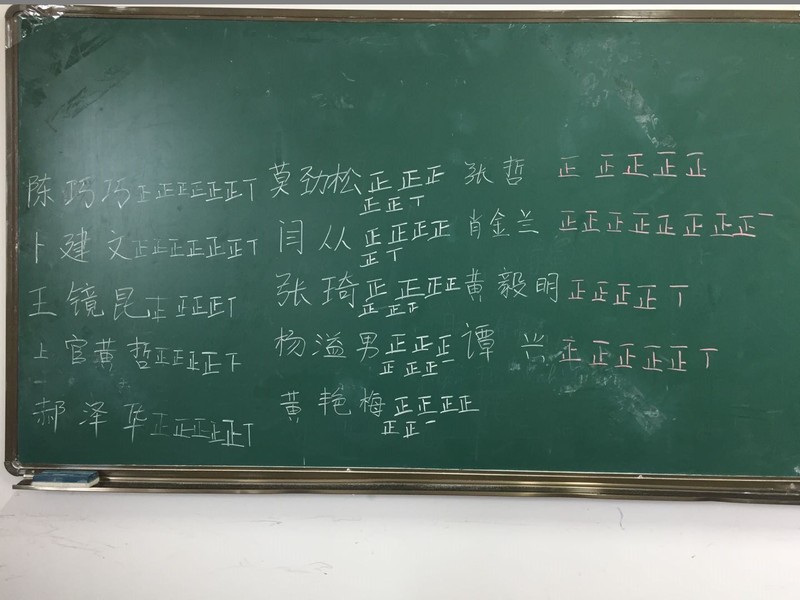 陈巧巧正正正正正正丅
卜建文正正正正正正丅
王镜昆正正正正丅
上官黄哲正正正正正下
郝泽华正正正正正丅
莫劲松正正正
正正丅
闫从正正正正
正丅
张琦正正正正
正正正
杨溢男正正正
正正正
黄艳梅正正正正
正正一
张哲正正正正正
肖金兰正正正正正正正正一
黄毅明正正正正丅
谭兴正正正正正丅